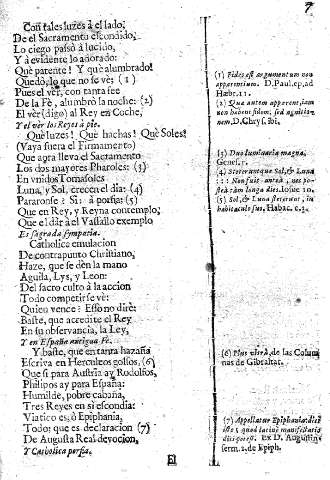 7
Con tales luzes à el lado,
De el Sacramento escondido,
Lo ciego passò à lucido,
Y à evidente lo adorado:
Què parente! Y què alumbrado!
Quedò, lo que no se vè: (1)
Pues el vèr, con tanta fee
De la Fè, alumbrò la noche: (2)
El vèr (digo) al Rey en Coche,
Y el vèr los Reyes à pie.
Què luzes! Què hachas! Què Soles!
(Vaya fuera el Firmamento)
Que agra lleva el Sacramento
Los dos mayores Pharoles: (3)
En vnidos Tornasoles
Luna, y Sol, crecen el dia: (4)
Pararonse? Si: à porfia: (5)
Que en Rey, y Reyna contemplo,
Que el dàr à el Vassallo exemplo
Es sagrada sympatia.
Catholica emulacion
De contrapunto Christiano,
Haze, que se dèn la mano
Aguila, Lys, y Leon:
Del sacro culto à la accion
Todo competirse vè:
Quien vence? Esso no dirè:
Baste, que acredite el Rey
En su observancia, la Ley,
Y en España antigua Fè.
Y baste, que en tanta hazaña
Escriva en Herculeos golfos, (6)
Que si para Austria ay Rodolfos,
Philipos ay para España:
Humilde, pobre cabaña,
Tres Reyes en si escondia:
Viatico es, ò Epiphania,
Todo; que es declaracion (7)
De Augusta Real devocion,
Y Catholica porfia.
El
(1) Fides est argumentum non
apparentium. D. Paul. ep. ad
Hæbr. 11.
(2) Qua autem apparent, iam
non habent fidem, sed agnitio-
nem, D. Chrys. ibi,
(3) Duo luminaria magna.
Genes. 1.
(4) Steteruntque Sol, & Luna
::: Non fuit anteà, nec pos-
teà tàm longa dies. Iosue 10.
(5) Sol, & Luna steterunt, in
habitaculo suo, Habac. c. 3.
(6) Plus vltrà, de las Colum
nas de Gibraltar.
(7) Appellatur Epiphania: dies
iste; quod latinè manifestatio
dici potest. Ex D. Augustin.
serm. 2. de Epiph.